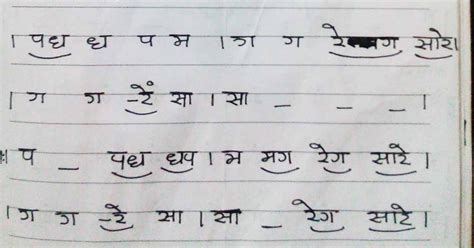 । पध ध प म । ग ग रेग सारे।
। ग ग -रें सा । सा _ _ _ ।
प _ पध धप । म मग रेग सारे ।
। ग ग -रे सा । सा _ रेग सारे ।